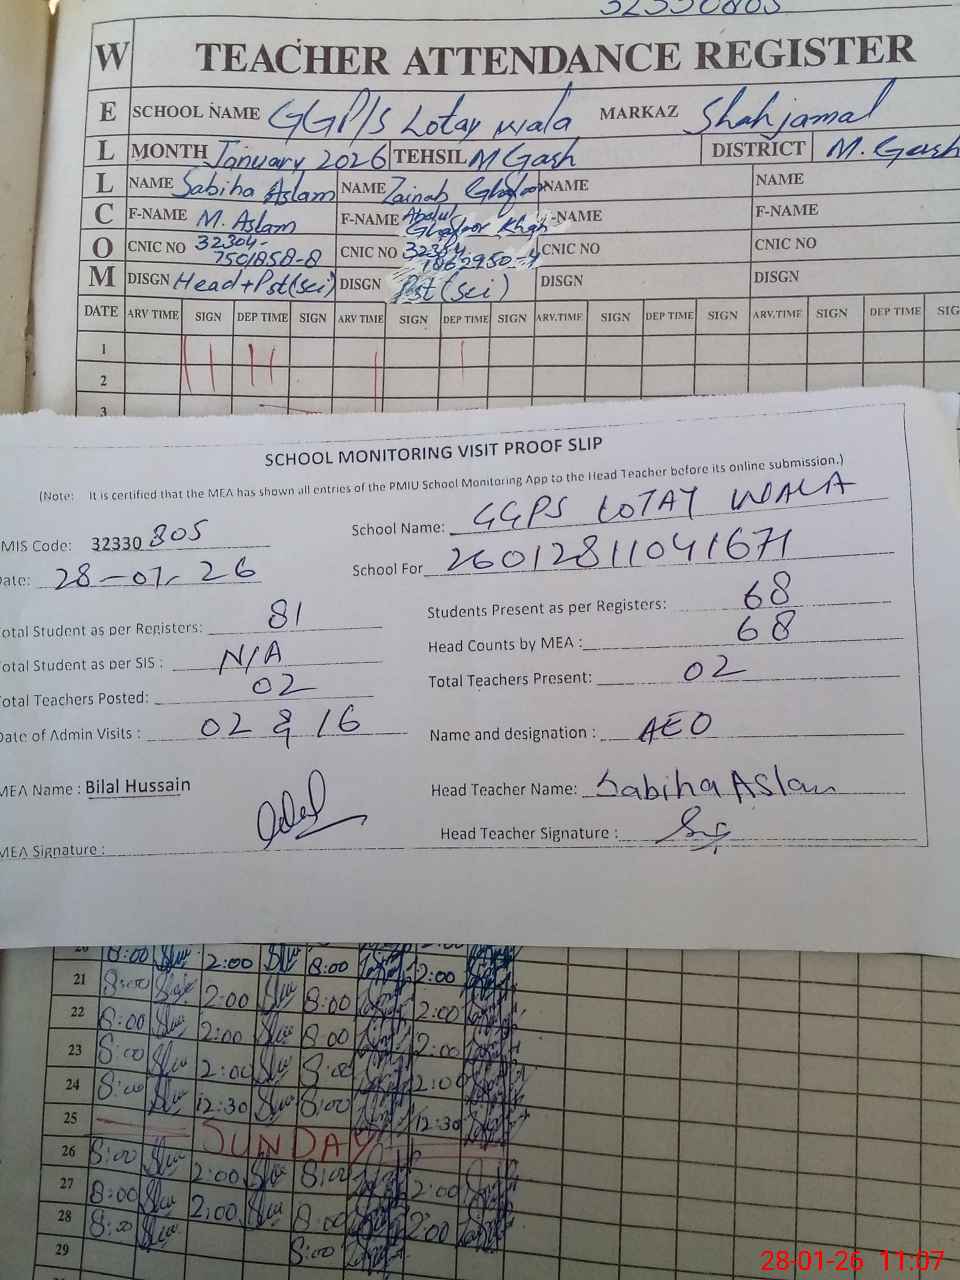 32330805
W TEACHER ATTENDANCE REGISTER
E SCHOOL NAME GGP/S Lotay wala MARKAZ Shahjamal
L MONTH January 2026 TEHSIL M Garh DISTRICT M. Garh
L NAME Sabiha Aslam NAME Zainab Ghafoor NAME NAME
C F-NAME M. Aslam F-NAME Abdul Ghafoor Khan F-NAME F-NAME
O CNIC NO 32304-7501858-8 CNIC NO CNIC NO CNIC NO
M DISGN Head+Pst(sci) DISGN Pst(sci) DISGN DISGN
DATE ARV TIME SIGN DEP TIME SIGN ARV TIME SIGN DEP TIME SIGN ARV.TIME SIGN DEP TIME SIGN ARV.TIME SIGN DEP TIME SIG
1
2
3
SCHOOL MONITORING VISIT PROOF SLIP
(Note: It is certified that the MEA has shown all entries of the PMIU School Monitoring App to the Head Teacher before its online submission.)
MIS Code: 32330 805 School Name: GGPS LOTAY WALA
Date: 28-01-26 School For 26012811041671
Total Student as per Registers: 81 Students Present as per Registers: 68
Total Student as per SIS : N/A Head Counts by MEA : 68
Total Teachers Posted: 02 Total Teachers Present: 02
Date of Admin Visits : 02 & 16 Name and designation : AEO
MEA Name : Bilal Hussain Head Teacher Name: Sabiha Aslam
MEA Signature : Head Teacher Signature :
20 8:00 2:00 8:00 2:00
21 8:00 2:00 8:00 2:00
22 8:00 2:00 8:00 2:00
23 8:00 2:00 8:00 2:00
24 8:00 12:30 8:00 12:30
25 SUNDAY
26 8:00 2:00 8:00 2:00
27 8:00 2:00 8:00 2:00
28 8:00 8:00
29
28-01-26 11:07